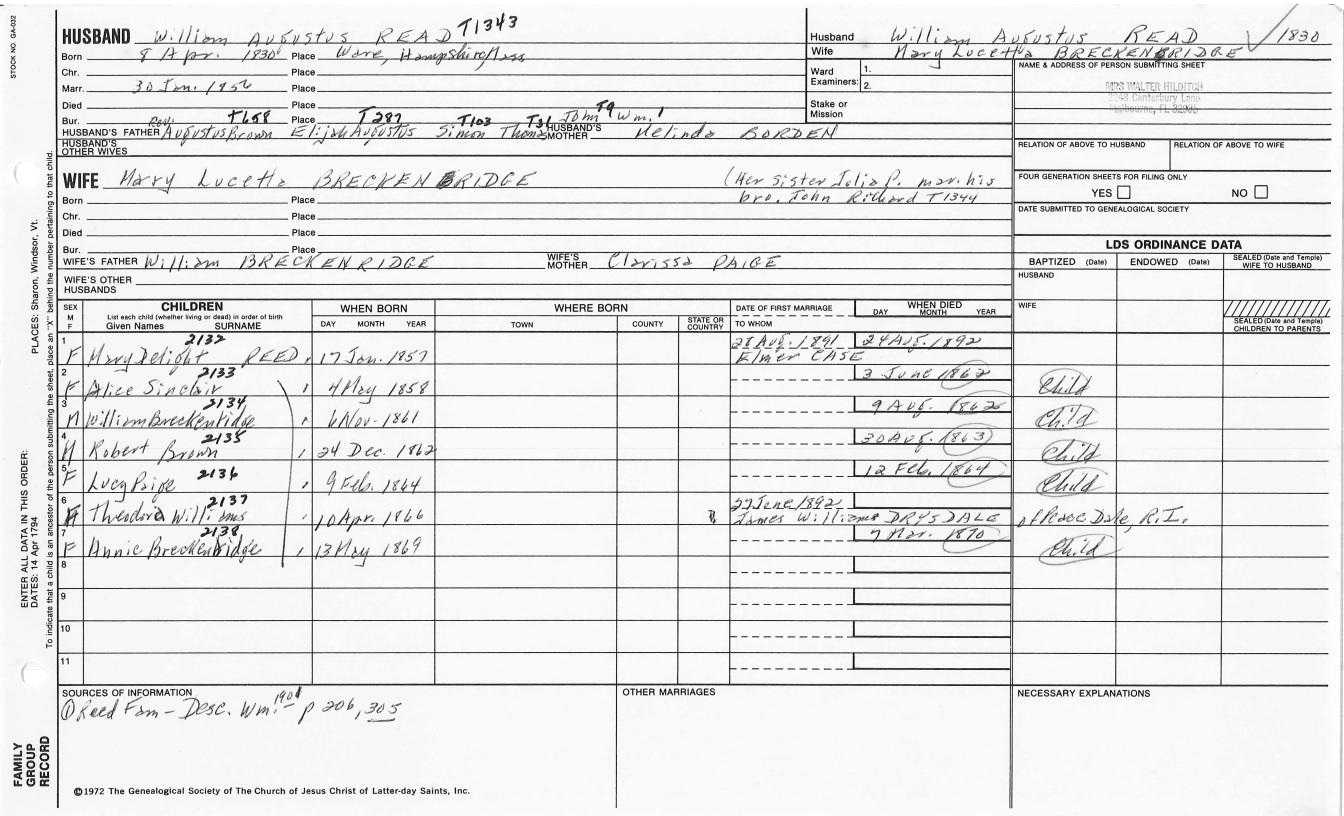 STOCK NO. GA-032
HUSBAND William Augustus READ T1343
Born 8 Apr. 1830 Place Ware, Hampshire, Mass
Chr. Place
Marr. 30 Jan. 1856 Place
Died Place
Bur. Place
Rev. T658 T287 T103 T31 T9
HUSBAND'S FATHER Augustus Brown Elijah Augustus Simon Thomas John Wm.1
HUSBAND'S MOTHER Melinda BORDEN
HUSBAND'S OTHER WIVES
WIFE Mary Lucetta BRECKENRIDGE (Her sister Julia P. mar. his
bro. John Richard T1344
Born Place
Chr. Place
Died Place
Bur. Place
WIFE'S FATHER William BRECKENRIDGE WIFE'S MOTHER Clarissa PAIGE
WIFE'S OTHER HUSBANDS
Husband William Augustus READ 1830
Wife Mary Lucetta BRECKENRIDGE
Ward Examiners: 1.
2.
Stake or Mission
NAME & ADDRESS OF PERSON SUBMITTING SHEET
MRS WALTER HILDITCH
2248 Canterbury Lane
Melbourne, FL
RELATION OF ABOVE TO HUSBAND RELATION OF ABOVE TO WIFE
FOUR GENERATION SHEETS FOR FILING ONLY
YES NO
DATE SUBMITTED TO GENEALOGICAL SOCIETY
LDS ORDINANCE DATA
BAPTIZED (Date) ENDOWED (Date) SEALED (Date and Temple) WIFE TO HUSBAND
HUSBAND
WIFE
SEALED (Date and Temple) CHILDREN TO PARENTS
SEX M F CHILDREN List each child (whether living or dead) in order of birth Given Names SURNAME WHEN BORN DAY MONTH YEAR WHERE BORN TOWN COUNTY STATE OR COUNTRY DATE OF FIRST MARRIAGE TO WHOM WHEN DIED DAY MONTH YEAR
1 2132 28 Aug. 1891 24 Aug. 1892
F Mary Delight REED 17 Jan. 1857 Elmer CASE
2 2133 3 June 1862
F Alice Sinclair 4 May 1858 Child
3 2134 9 Aug. 1862
M William Breckenridge 6 Nov. 1861 Child
4 2135 30 Aug. 1863
M Robert Brown 24 Dec. 1862 Child
5 2136 12 Feb. 1864
F Lucy Paige 9 Feb. 1864 Child
6 2137 27 June 1892
F Theodora Williams 10 Apr. 1866 James Williams DRYSDALE of Peace Dale, R.I.
7 2138 7 Mar. 1870
F Annie Breckenridge 13 May 1869 Child
8
9
10
11
SOURCES OF INFORMATION
① Reed Fam - Desc. Wm. 1901 p 206, 305
OTHER MARRIAGES
NECESSARY EXPLANATIONS
©1972 The Genealogical Society of The Church of Jesus Christ of Latter-day Saints, Inc.
ENTER ALL DATA IN THIS ORDER:
DATES: 14 Apr 1794
PLACES: Sharon, Windsor, Vt.
To indicate that a child is an ancestor of the person submitting the sheet, place an "X" behind the number pertaining to that child.
FAMILY GROUP RECORD